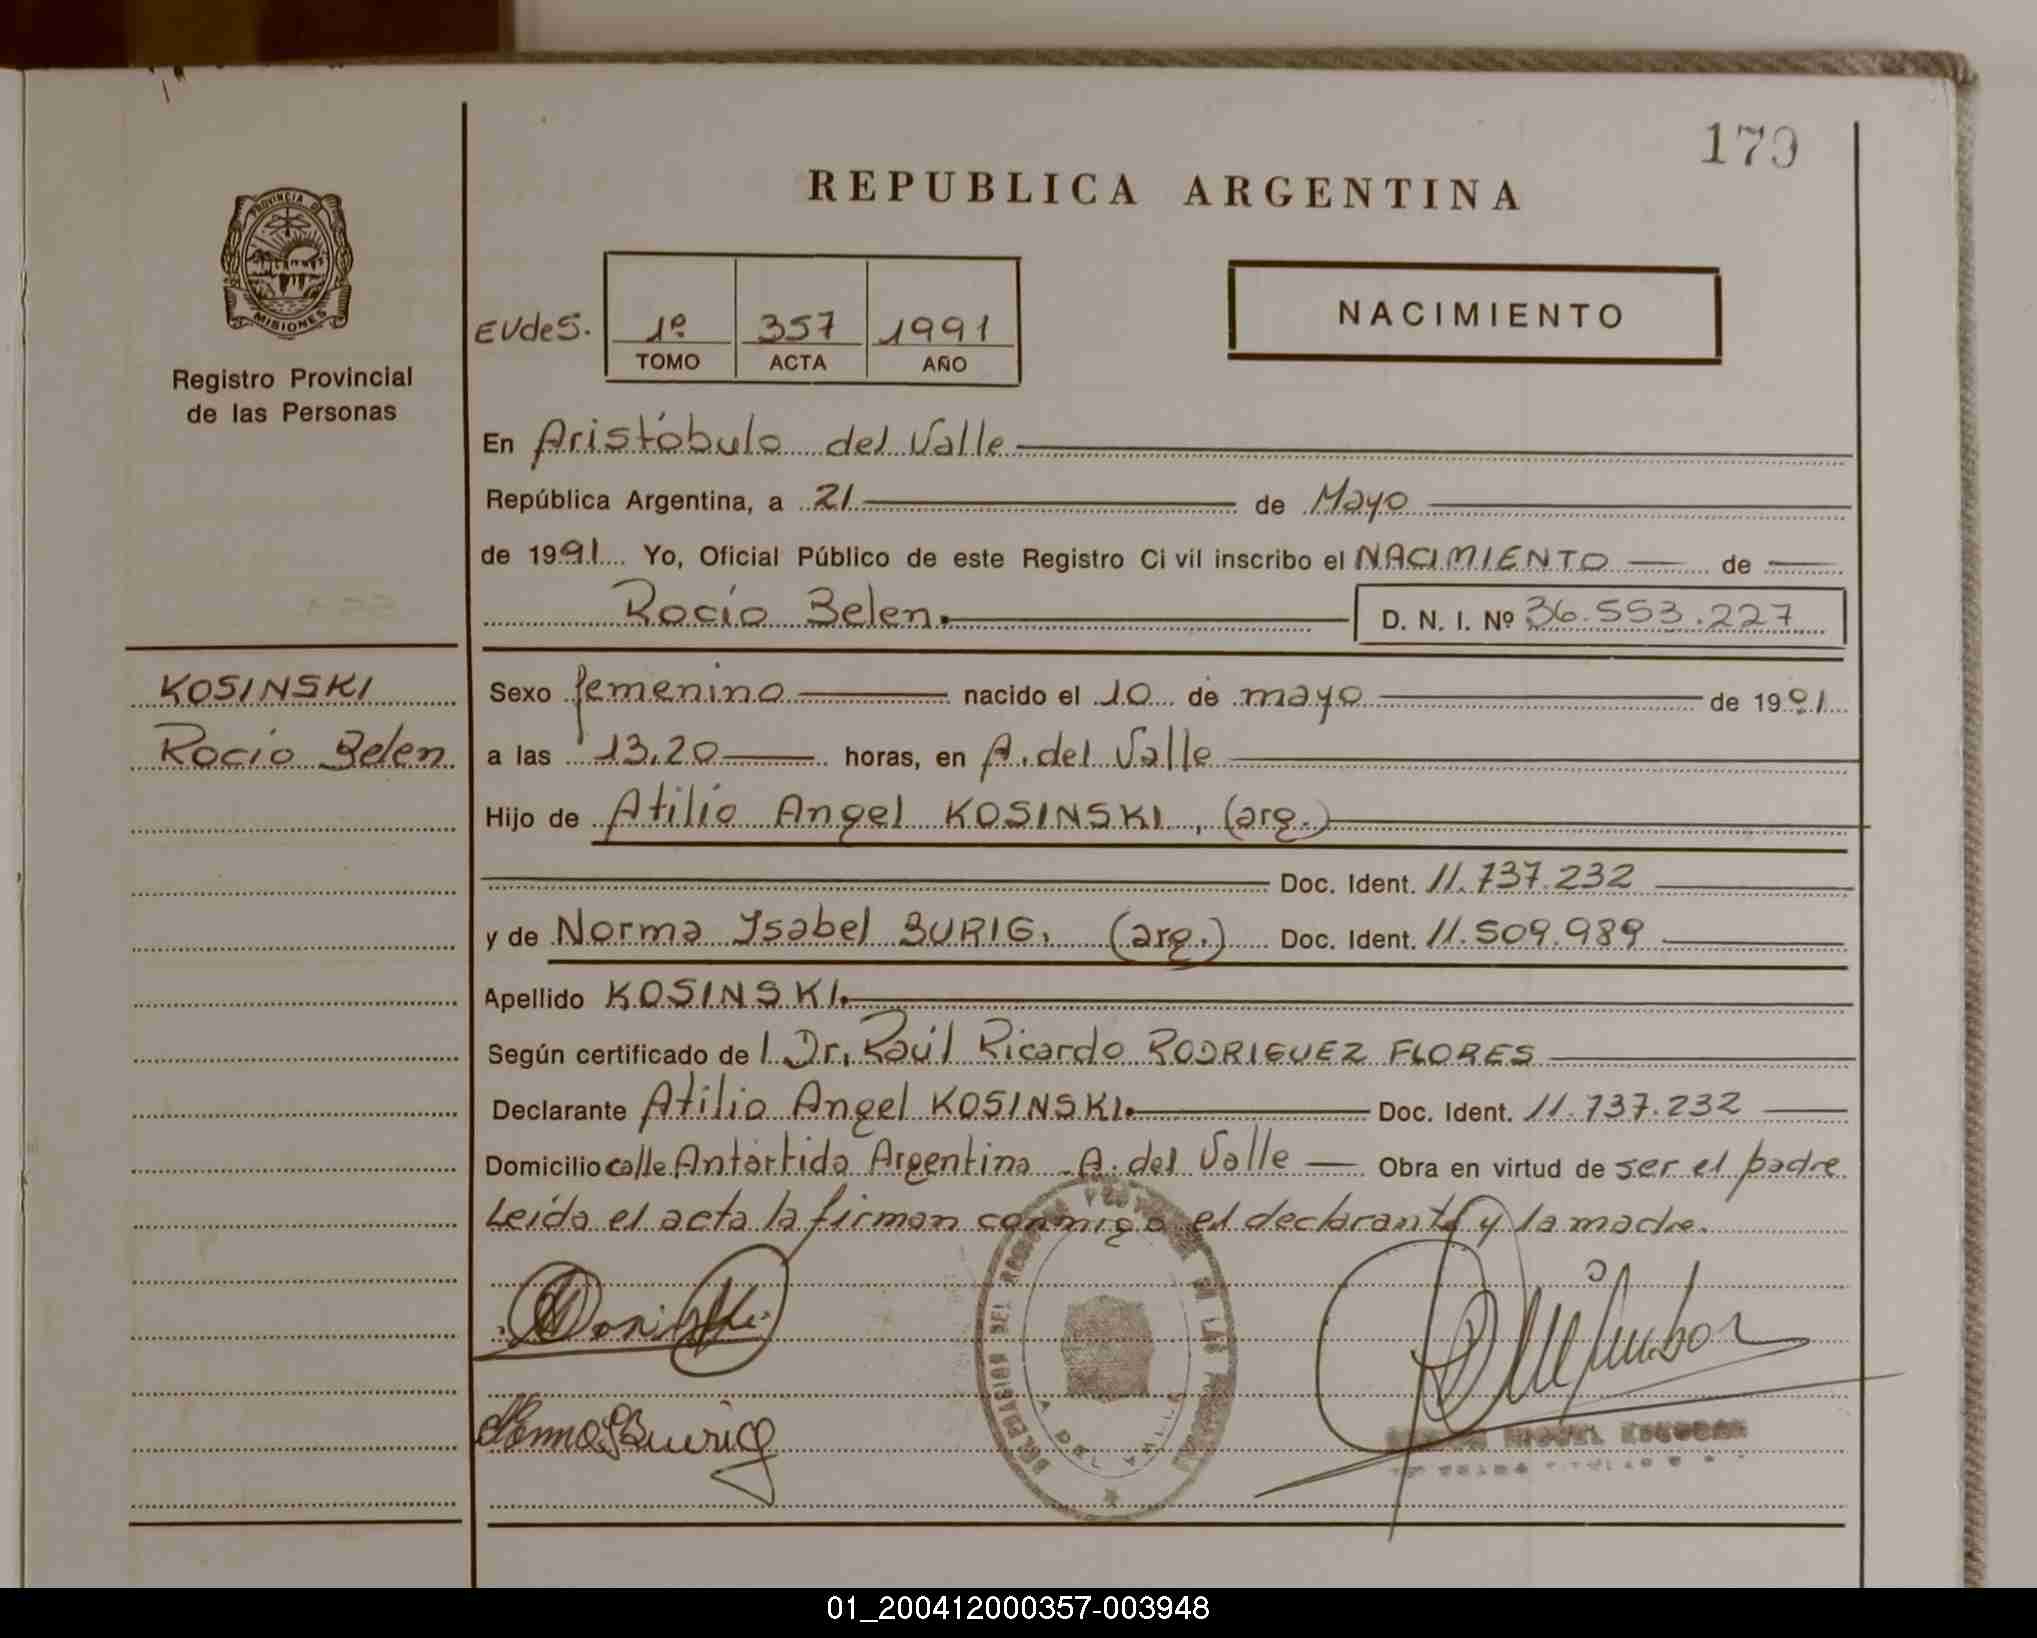 179
REPUBLICA ARGENTINA
PROVINCIA D
MISIONES
Registro Provincial
de las Personas
EUdeS.
1º 357 1991
TOMO ACTA AÑO
NACIMIENTO
En Aristóbulo del Valle
República Argentina, a 21 de Mayo
de 1991 Yo, Oficial Público de este Registro Ci vil inscribo el NACIMIENTO de
Rocío Belen. D. N. I. Nº 36.553.227
KOSINSKI
Rocio Belen
Sexo femenino nacido el 10 de mayo de 1991
a las 13.20 horas, en A. del Valle
Hijo de Atilio Angel KOSINSKI, (arg.)
Doc. Ident. 11.737.232
y de Norma Ysabel BURIG, (arg.) Doc. Ident. 11.509.989
Apellido KOSINSKI.
Según certificado de l Dr. Raúl Ricardo RODRIGUEZ FLORES
Declarante Atilio Angel KOSINSKI. Doc. Ident. 11.737.232
Domicilio calle Antártida Argentina A. del Valle Obra en virtud de ser el padre
Leída el acta la firman conmigo el declarante y la madre.
DELEGACION DEL REGISTRO PROVINCIAL DE LAS PERSONAS
A. DEL VALLE
MIGUEL ESCOBAR
01_200412000357-003948